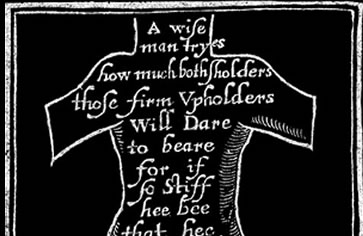 A wise
man tryes
how much both sholders
those firm Vpholders
Will Dare
to beare
for if
so Stiff
hee bee
that hee